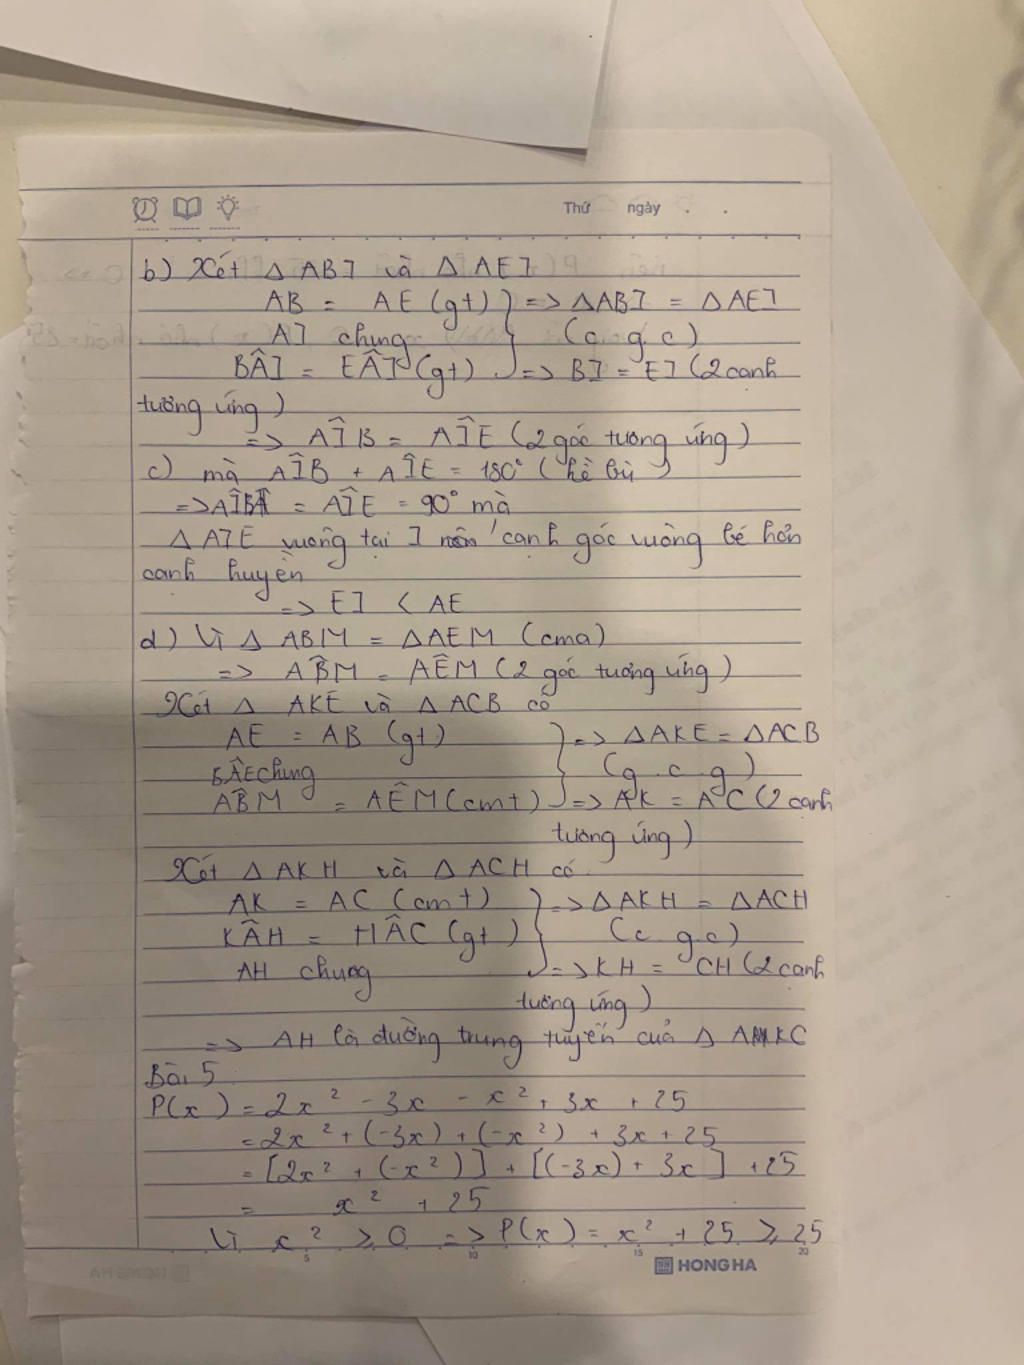 Thứ ngày . .
b) Xét Δ ABI và Δ AEI
AB = AE (gt) } => ΔABI = ΔAEI
AI chung (c.g.c)
BÂI = EÂI (gt) => BI = EI (2 cạnh
tương ứng)
=> AÎB = AÎE (2 góc tương ứng)
c) mà AÎB + AÎE = 180° (kề bù)
=> AÎB = AÎE = 90° mà
Δ AIE vuông tại I nên cạnh góc vuông bé hơn
cạnh huyền
=> EI < AE
d) Vì Δ ABM = ΔAEM (cma)
=> AB̂M = AÊM (2 góc tương ứng)
Xét Δ AKE và Δ ACB có
AE = AB (gt) } => ΔAKE = ΔACB
BÂE chung (g.c.g)
AB̂M = AÊM (cmt) => AK = AC (2 cạnh
tương ứng)
Xét Δ AKH và Δ ACH có
AK = AC (cmt) } => ΔAKH = ΔACH
KÂH = HÂC (gt) (c.g.c)
AH chung => KH = CH (2 cạnh
tương ứng)
=> AH là đường trung tuyến của Δ AKC
Bài 5
P(x) = 2x² - 3x - x² + 3x + 25
= 2x² + (-3x) + (-x²) + 3x + 25
= [2x² + (-x²)] + [(-3x) + 3x] + 25
= x² + 25
Vì x² ≥ 0 => P(x) = x² + 25 ≥ 25
5 10 15 20
HONG HA